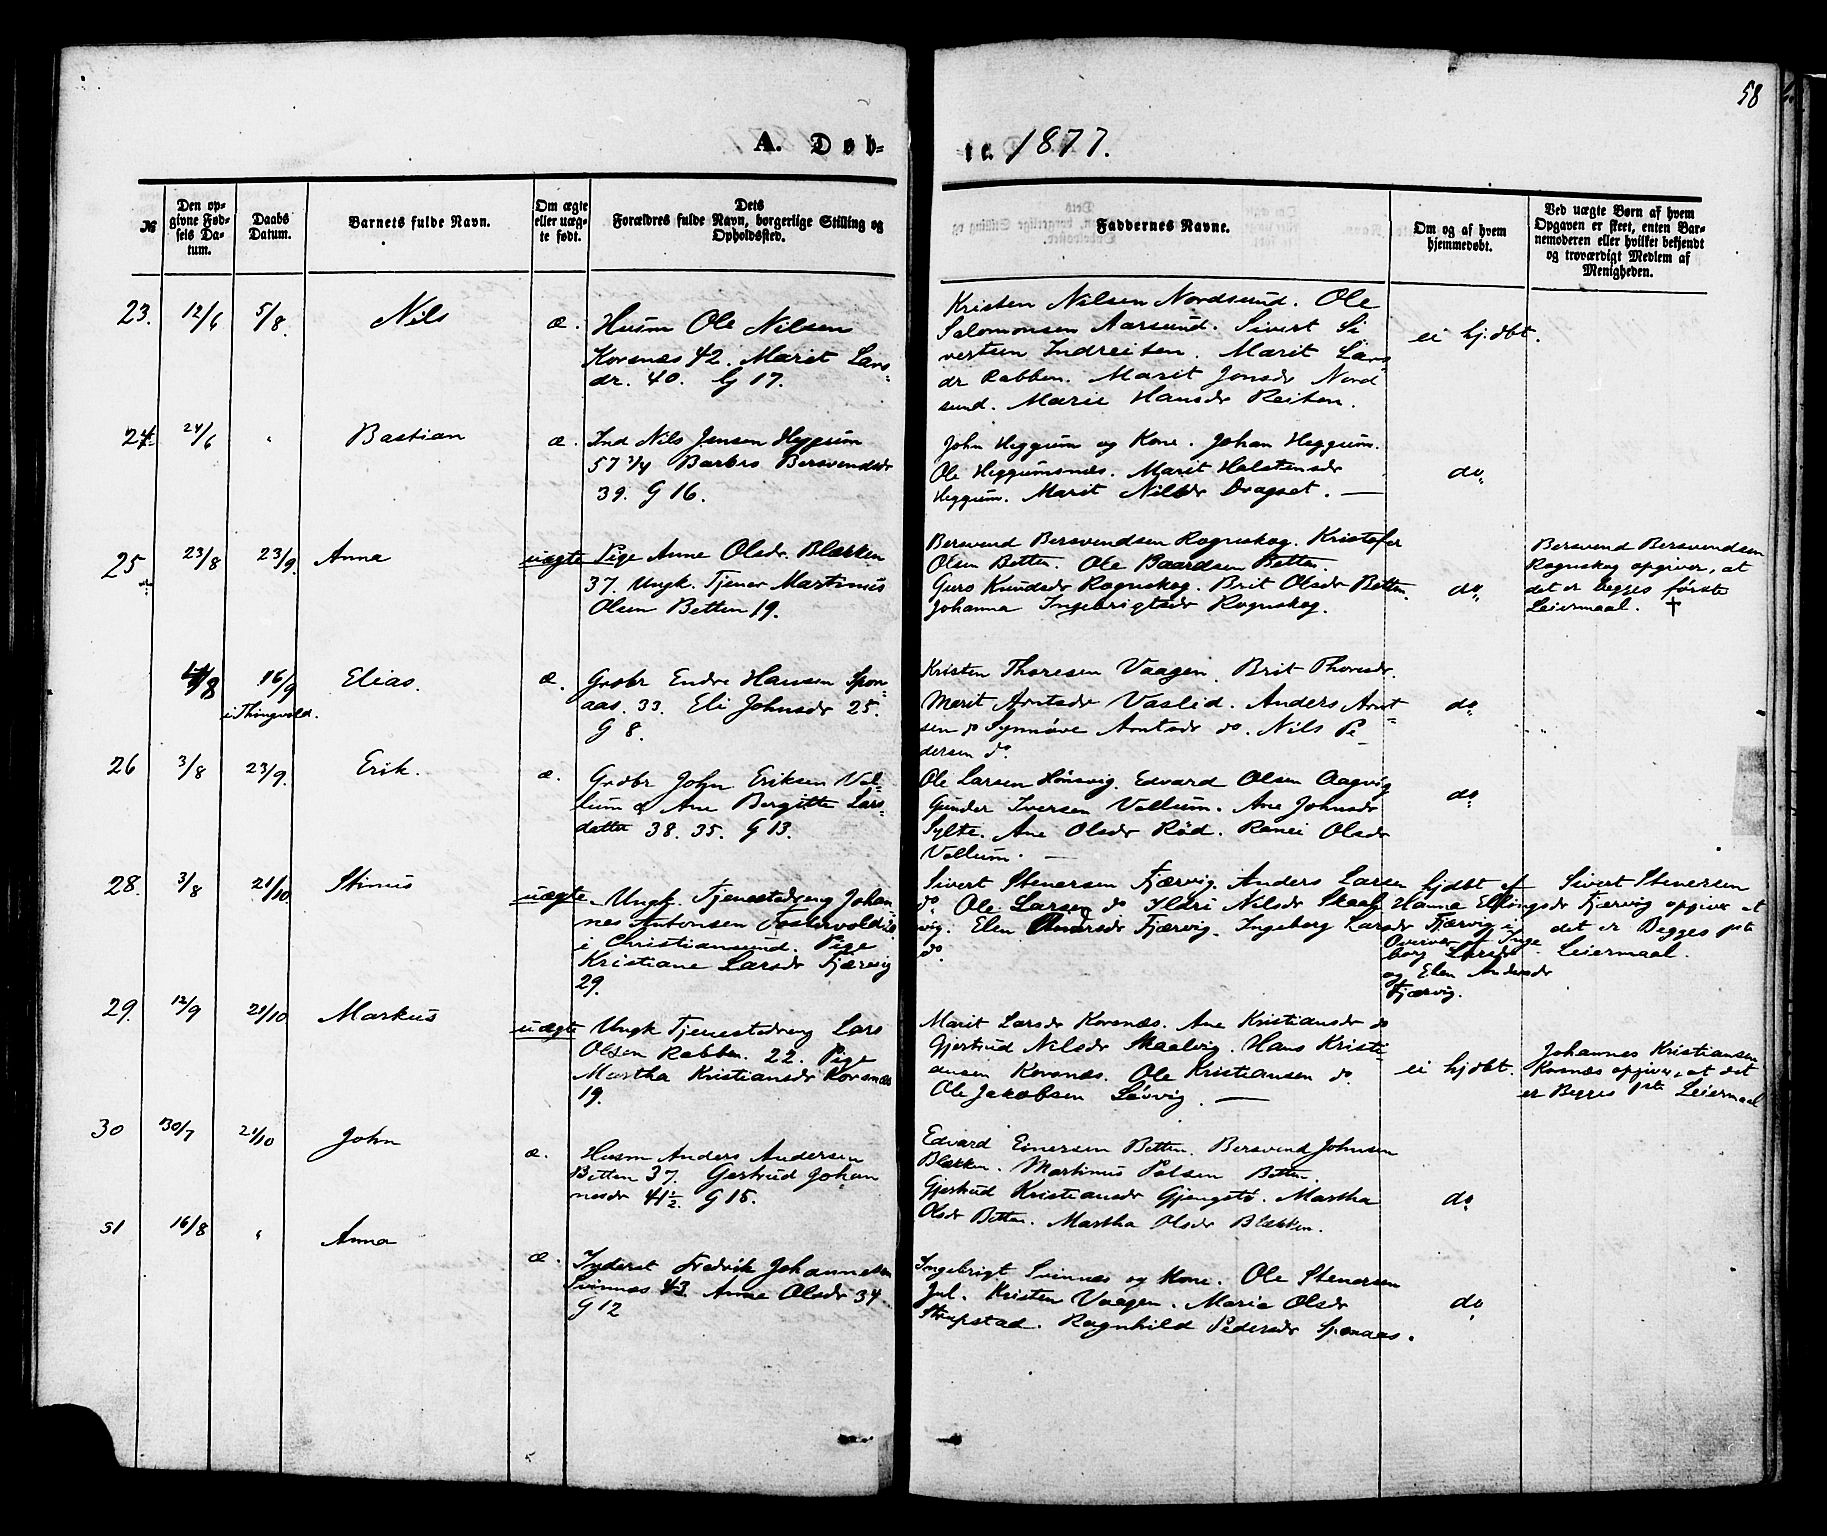 58
A. Døb-
te. 1877.
№
Den op-
givne Fød-
sels Da-
tum.
Daabs
Datum.
Barnets fulde Navn.
Om ægte
eller uæg-
te født.
Dets
Forældres fulde Navn, borgerlige Stilling og
Opholdssted.
Faddernes Navne.
Om og af hvem
hjemmedøbt.
Ved uægte Børn af hvem
Opgaven er skeet, enten Bar-
nemoderen eller hvilket bekjendt
og troværdigt Medlem af
Menigheden.
23. 12/6 5/8. Nils æ.
Husm Ole Nilsen
Korsnæs 42. Marit Lars-
dr. 40. G 17.
Kristen Nilsen Nordsund. Ole
Salomonsen Aarsund. Sivert Si
vertsen Indreiten. Marit Lars
dr Rabben. Marit Jonsdr Nord
sund. Marie Hansdr Reiten.
ei hj.døbt.
24. 24/6 " Bastian æ.
Ind Nils Jensen Heggum
57 3/4 Barbro Bersvendsdr
39. G 16.
John Heggum og Kone. Johan Heggum.
Ole Heggumsnæs. Marit Halstensdr
Heggum. Marit Nilsdr Dragset. —
do.
25 23/8 23/9. Anna uægte
Pige Anne Olsdr. Blækken
37. Ungk. Tjener Martinus
Olsen Betten 19.
Bersvend Bersvendsen Rognskog. Kristofer
Olsen Betten. Ole Baardsen Betten.
Guro Knudsdr Rognskog. Brit Olsdr Betten.
Johanna Ingebrigtsdr Rognskog.
do.
Bersvend Bersvendsen
Rognskog opgiver, at
det er begges første
Leiermaal. †
/8 16/9 Elias. æ.
i Thingvold.
Grdbr Endre Hansen Spon-
aas. 33. Eli Johnsdr 25.
G 8.
Kristen Thoresen Vaagen. Brit Thoresdr.
Marit Arntsdr Vaslid. Anders Arnt-
sen do Synnøve Arntsdr do. Nils Pe-
dersen do
do.
26 3/8 23/9. Erik. æ.
Grdbr John Eriksen Val-
lum & Ane Bergitte Lars-
datter 38. 35. G 13.
Ole Larsen Hønsvig. Edvard Olsen Aagvig
Gunder Iversen Vallum. Ane Johnsdr
Sylte. Ane Olsdr Rød. Ranei Olsdr
Vallum. —
do.
28. 3/8 21/10 Stinus uægte.
Ungk. Tjenestedreng Johan
nes Antonsen Fostervold
i Christiansund. Pige
Kristiane Larsdr Fjærvig
29.
Sivert Stenersen Fjærvig. Anders Larsen
do. Ole Larsen do Ildri Nilsdr Skaal
vig. Elen Andersdr Fjærvig. Ingeborg Larsdr
do.
hjdbt af
Hanna Ellingsdr
Fjærvig
Overvær af Inge
borg Larsdr
og Elen Andersdr
Fjærvig.
Sivert Stenersen
Fjærvig opgiver at
det er Begges 1ste
Leiermaal.
29. 12/9 21/10 Markus uægte
Ungk Tjenestedreng Lars
Olsen Rabben. 22. Pige
Martha Kristiansdr Korsnæs
19.
Marit Larsdr Korsnæs. Ane Kristiansdr do
Gjertrud Nilsdr Skaalvig. Hans Kristi-
ansen Korsnæs. Ole Kristiansen do.
Ole Jakobsen Løvvig. —
ei hjdbt.
Johannes Kristiansen
Korsnæs opgiver, at det
er Begges 1ste Leiermaal
30 30/7 21/10 John æ.
Husm Anders Andersen
Betten 37. Gertrud Johan
nesdr 41½. G 15.
Edvard Einersen Betten. Bersvend Johnsen
Blækken. Martinus Pålsen Betten.
Gjertrud Kristiansdr Gjengstø. Martha
Olsdr Betten. Martha Olsdr Blækken.
do.
31 16/8 " Anna æ.
Inderst Fredrik Johannesen
Svinnæs 43. Anne Olsdr 34
G 12
Ingebrigt Svinnæs og Kone. Ole Stenersen
Jul. Kristen Vaagen. Marie Olsdr
Strapstad. Ragnhild Pedersdr Sponaas.
do.